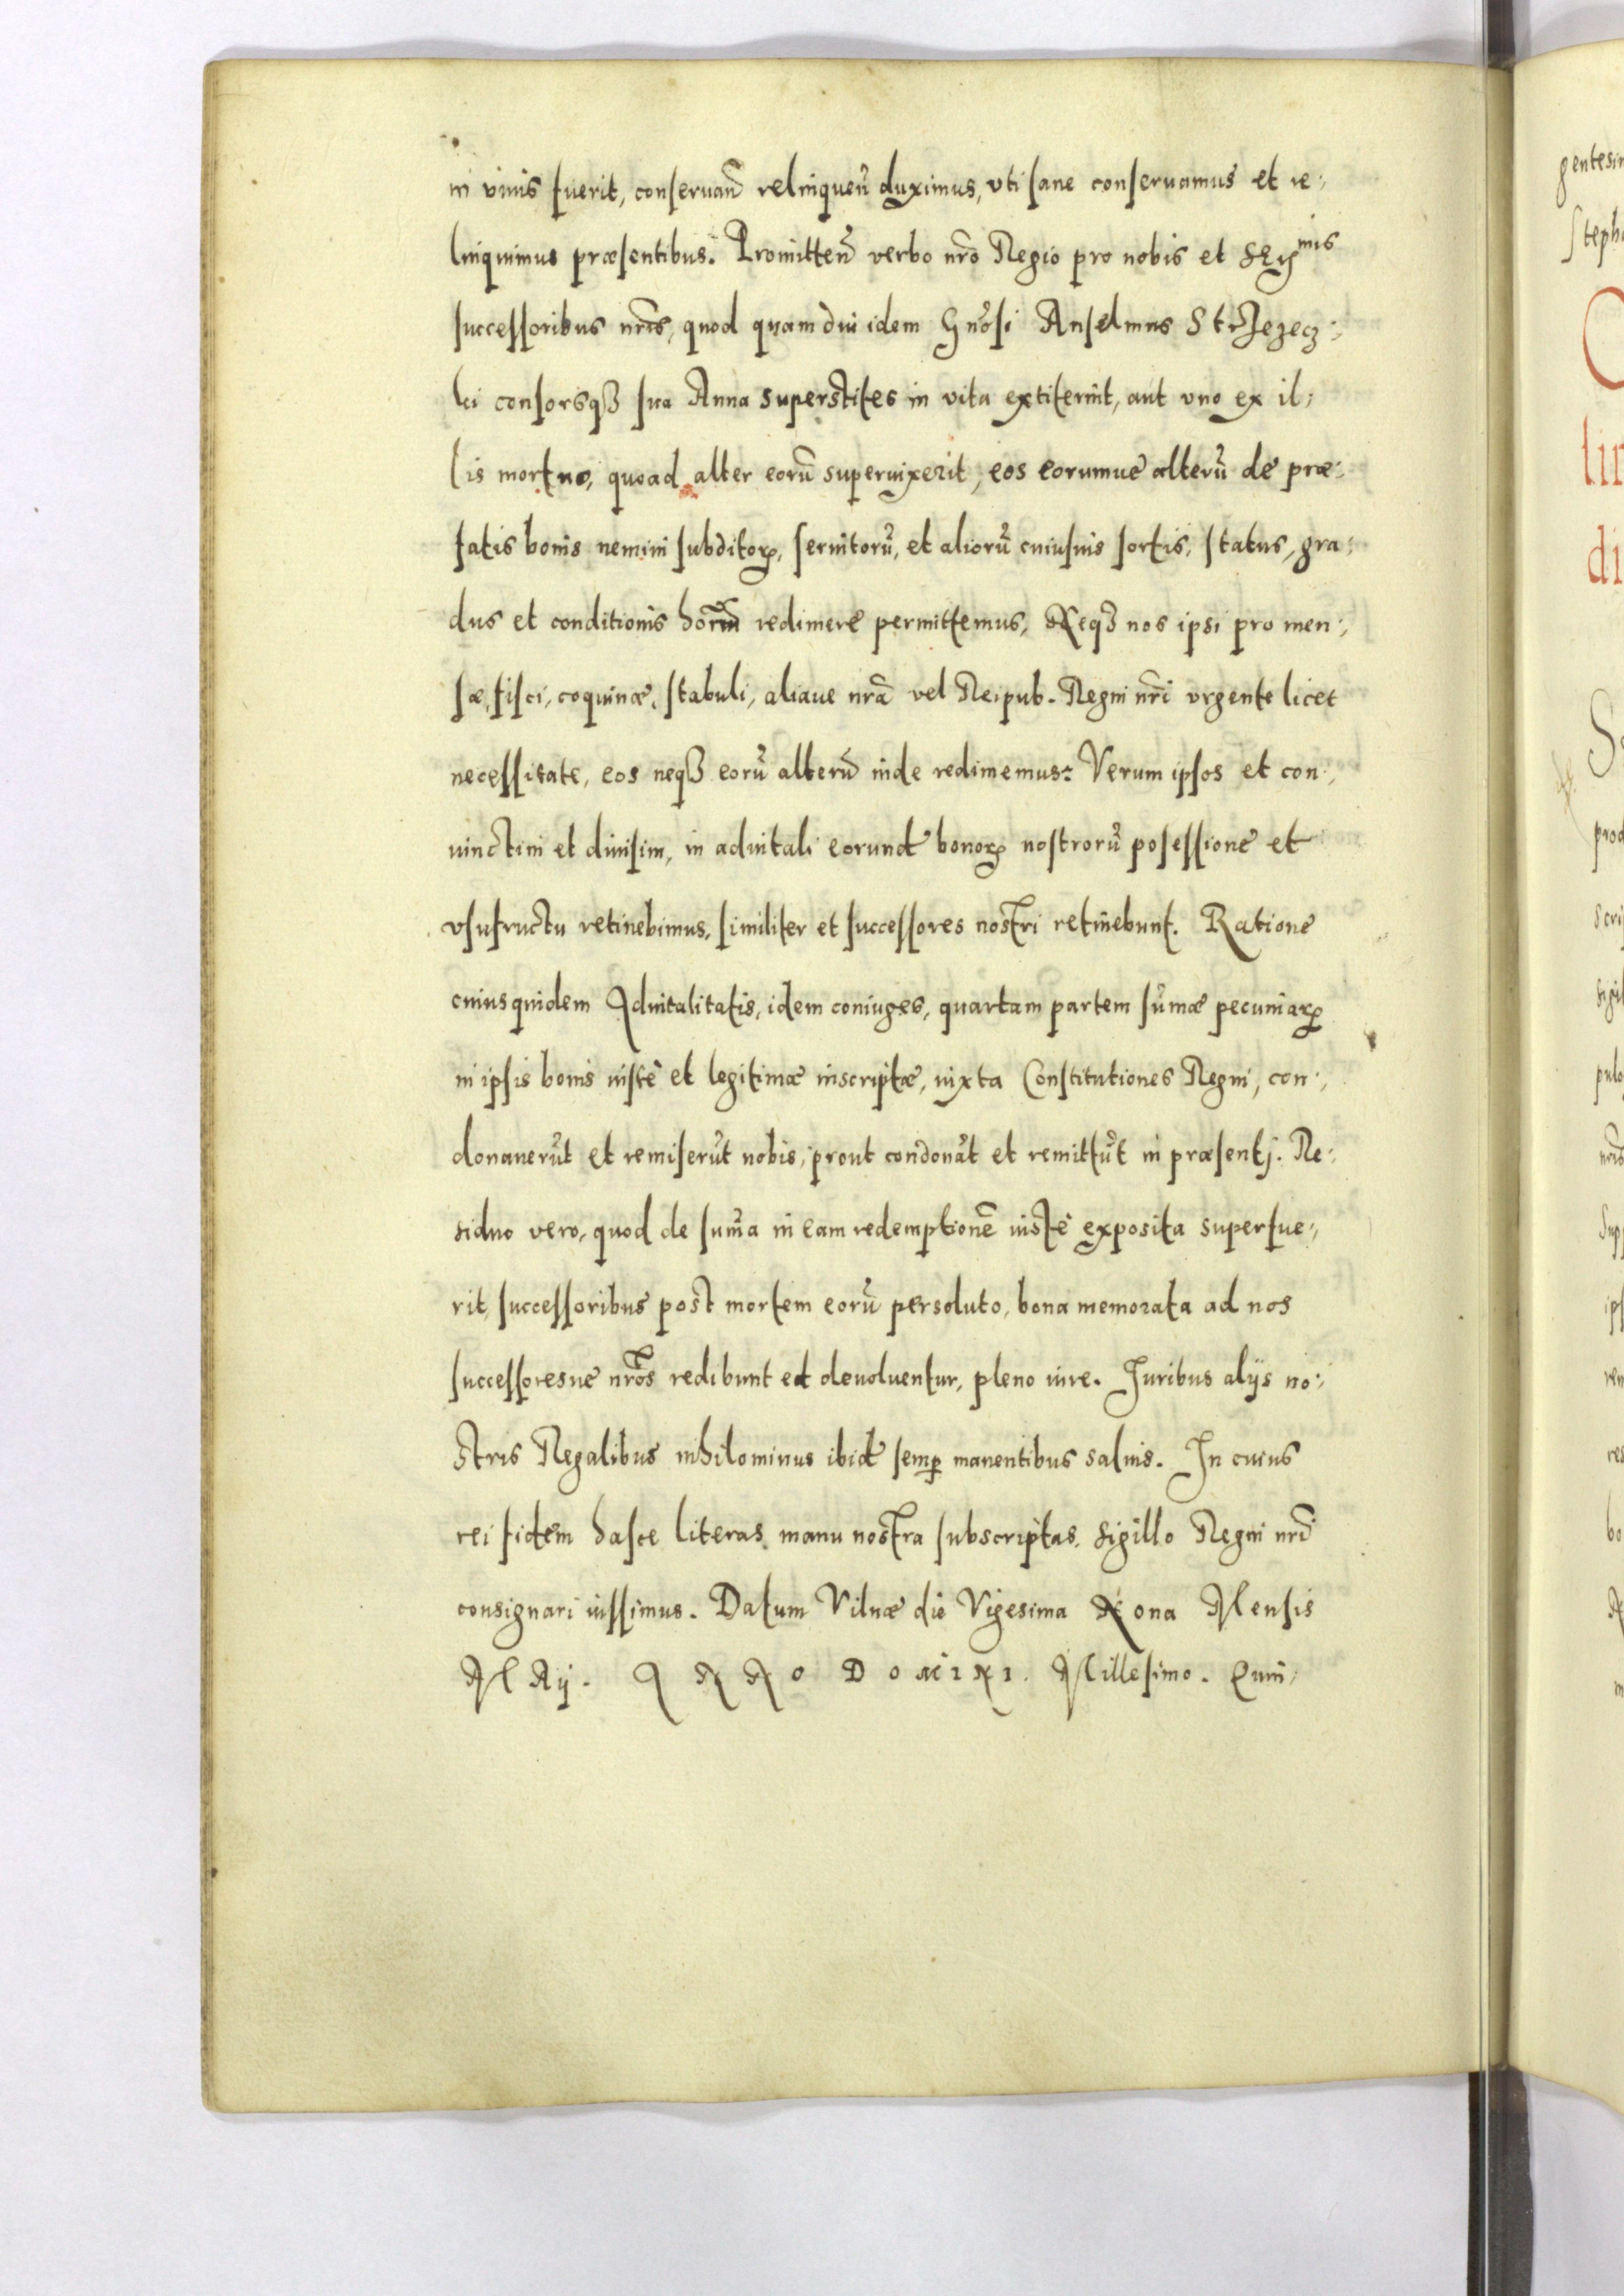 in viuis fuerit, conseruan̄ relinquen̄ duximus, vti sane conseruamus et re:
linquimus præsentibus. Promitten̄ verbo nr̄o Regio pro nobis et Ser^mis
successoribus nr̄is, quod quam diu idem Gn̄osi Anselmus Strzezecz:
ki consorsq₃ sua Anna superstites in vita extiterint, aut vno ex il:
lis mortuo, quoad alter eorū superuixerit, eos eorumue alterū de præ:
fatis bonis nemini subditoꝝ, seruitorū, et aliorū cuiusuis sortis, status, gra:
dus et conditionis hom̄ redimere permittemus, Neq₃ nos ipsi pro men:
sæ, fisci, coquinæ, stabuli, aliaue nr̄a vel Reipub. Regni nr̄i vrgente licet
necessitate, eos neq₃ eorū alterū inde redimemus: Verum ipsos et con:
iunctim et diuisim, in aduitali eorund bonoꝝ nostrorū posessione et
vsufructu retinebimus, similiter et successores nostri retinebunt. Ratione
cuiusquidem Aduitalitatis, idem coniuges, quartam partem sūmæ pecuniaꝝ
in ipsis bonis iuste et legitimæ inscriptæ, iuxta Constitutiones Regni, con:
donauerūt et remiserūt nobis, prout condonāt et remittūt in præsentj. Re:
siduo vero, quod de sum̄a in eam redemptionē iuste exposita superfue:
rit, successoribus post mortem eorū persoluto, bona memorata ad nos
successoresue nr̄os redibunt et deuoluentur, pleno iure. Juribus alijs no:
stris Regalibus nihilominus ibid semꝑ manentibus saluis. In cuius
rei fidem hasce literas manu nostra subscriptas, sigillo Regni nr̄i
consignari iussimus. Datum Vilnæ die Vigesima Nona Mensis
MAij. ANNO DOMINI. Millesimo. Quin:
gentesim
Steph